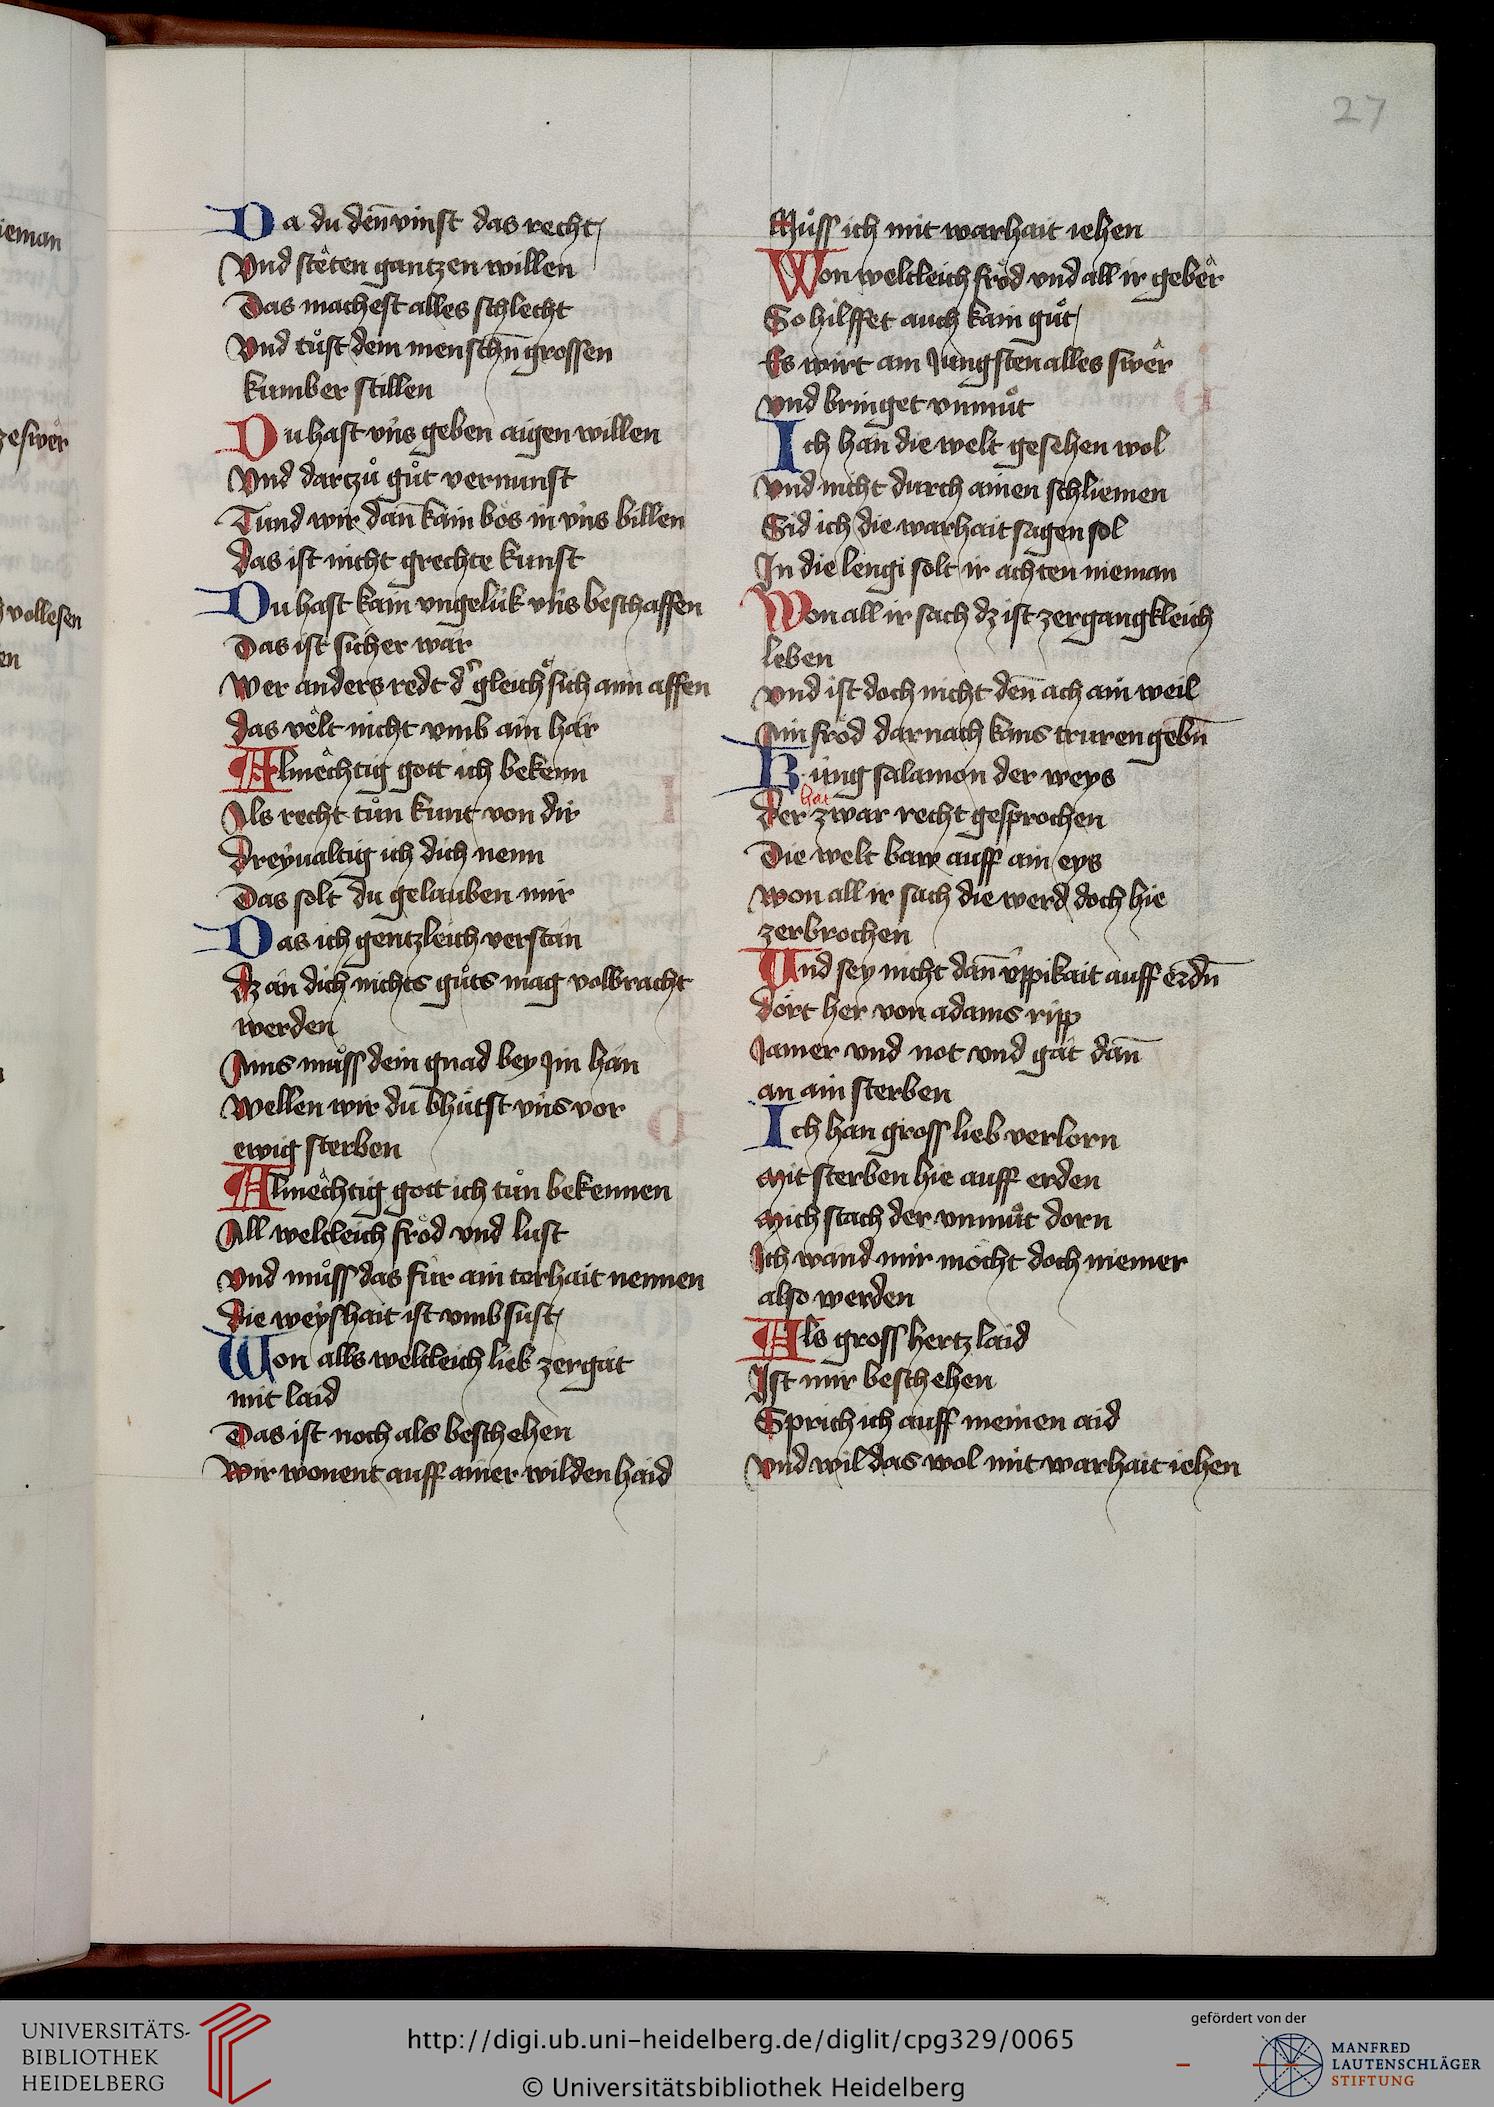 27
Da du den̄ vinst das recht
Vnd stêten gantzen willen
Das machest alles schlecht
Vnd tůst dem menschn̄ grossen
kumber stillen
Du hast vns geben aigen willen
Vnd darczů gůt vernunst
Tund wir dan̄ kain bös in vns billen
das ist nicht grechte kunst
Du hast kain vngelük vns beschaffen
Das ist sicher war
Wer anders redt d' gleichet sich aim affen
das vêlt nicht vmb ain har
Almêchtig gott ich bekenn
Als recht tůn kunt von dir
dreyualtig ich dich nenn
Das solt du gelauben mir
Das ich gentzleich verstan
dz an dich nichts gůts mag volbracht
werden
Ains můss dein gnad bey Jm han
Wellen wir du bhütst vns vor
ewig sterben
Almêchtig gott ich tůn bekennen
All weltleich fröd vnd lust
Vnd můss das für ain torhait nennen
die weyshait ist vmb sust
Won alls weltleich lieb zergat
mit laid
Das ist noch als beschehen
Wir wonent auff ainer wilden haid
Můss ich mit warhait iehen
Won weltleich fröd vnd all ir gebêr
So hilffet auch kain gůt
Es wirt am Jungsten alles swêr
Vnd bringet vnmůt
Ich han die welt gesehen wol
Vnd nicht durch ainen schliemen
Sid ich die warhait sagen sol
In die lengi solt ir achten nieman
Won all ir sach dz ist zergangkleich
leben
Vnd ist doch nicht den̄ ach ain weil
Ain fröd darnach kans truren gebn̄
Küng salamon der weys
hat
der zwar recht gesprochen
Die welt baw auff ain eys
Won all ir sach die werd doch hie
zerbrochen
Vnd sey nicht dan̄ vppikait auff erdn̄
dört her von adams ripp
Jamer vnd not vnd gat dan̄
an ain sterben
Ich han gross lieb verlorn
Mit sterben hie auff erden
Mich stach der vnmůt dorn
Ich wand mir möcht doch niemer
also werden
Als gross hertz laid
Ist mir beschehen
Sprich ich auff meinen aid
Vnd wil das wol mit warhait iehen
ieman
zeswêr
vollesen
en
UNIVERSITÄTS-
BIBLIOTHEK
HEIDELBERG
http://digi.ub.uni-heidelberg.de/diglit/cpg329/0065
© Universitätsbibliothek Heidelberg
gefördert von der
MANFRED
LAUTENSCHLÄGER
STIFTUNG